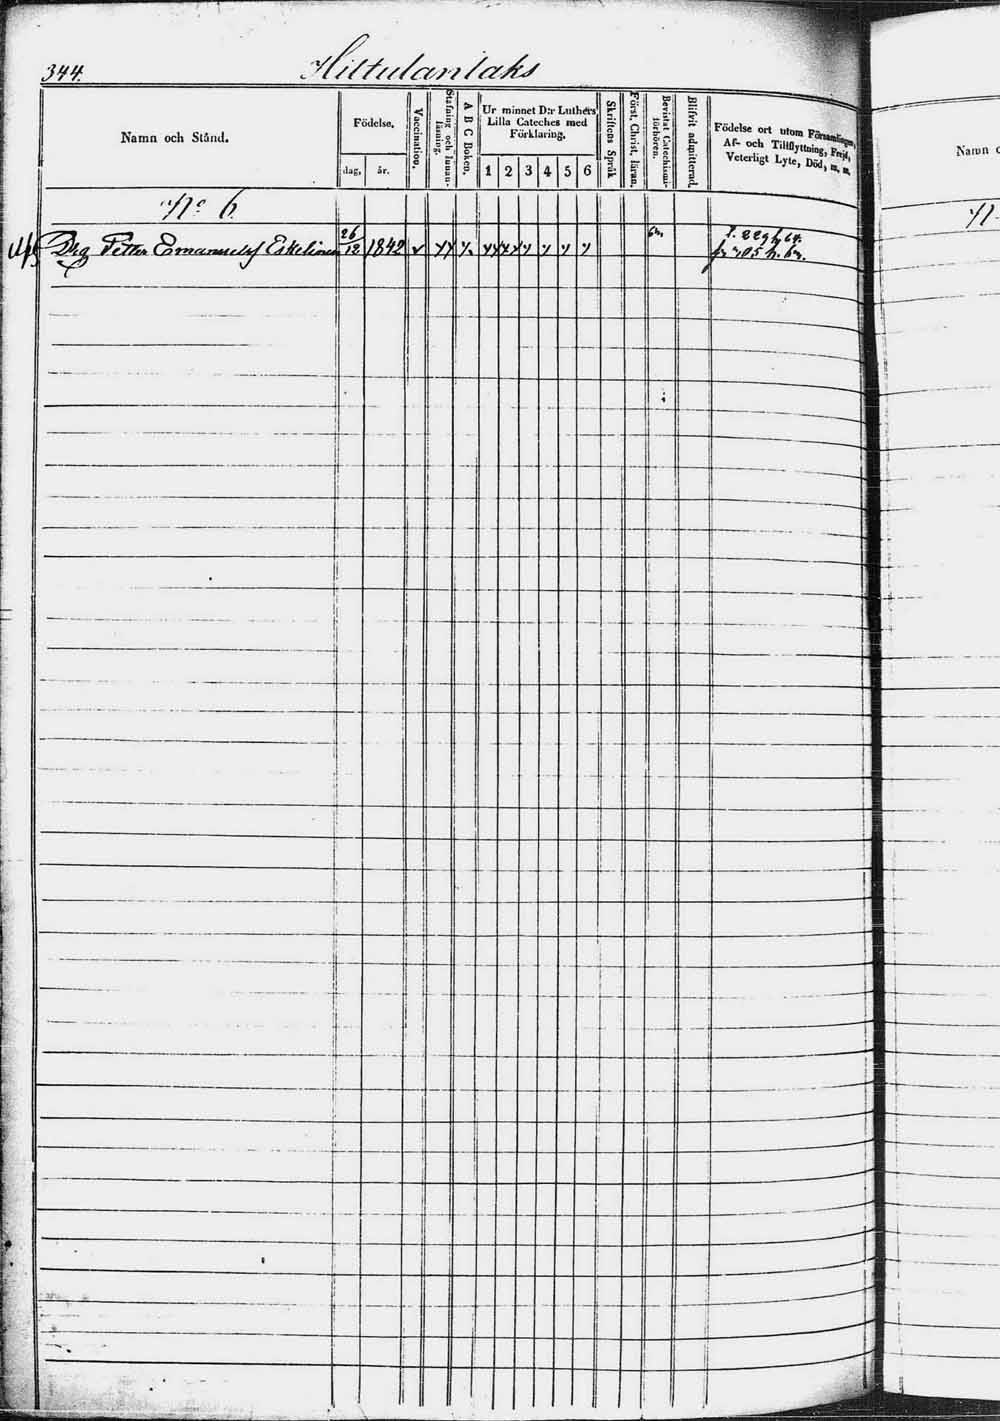 344.
Hiltulanlaks
Namn och Stånd.
Födelse.
dag,
år.
Vaccination.
Stafning och Innan-läsning.
A B C Boken.
Ur minnet D:r Luthers
Lilla Cateches med
Förklaring.
1 2 3 4 5 6
Skriftens Språk
Först. Christ. läran.
Bevistat Catechismi-förhören.
Blifvit admitterad.
Födelse ort utom Församlingen,
Af- och Tillflyttning, Frejd,
Veterligt Lyte, Död, m. m.
Namn
No 6.
Drg Petter Emanuelss Eskelinen 26/12 1842